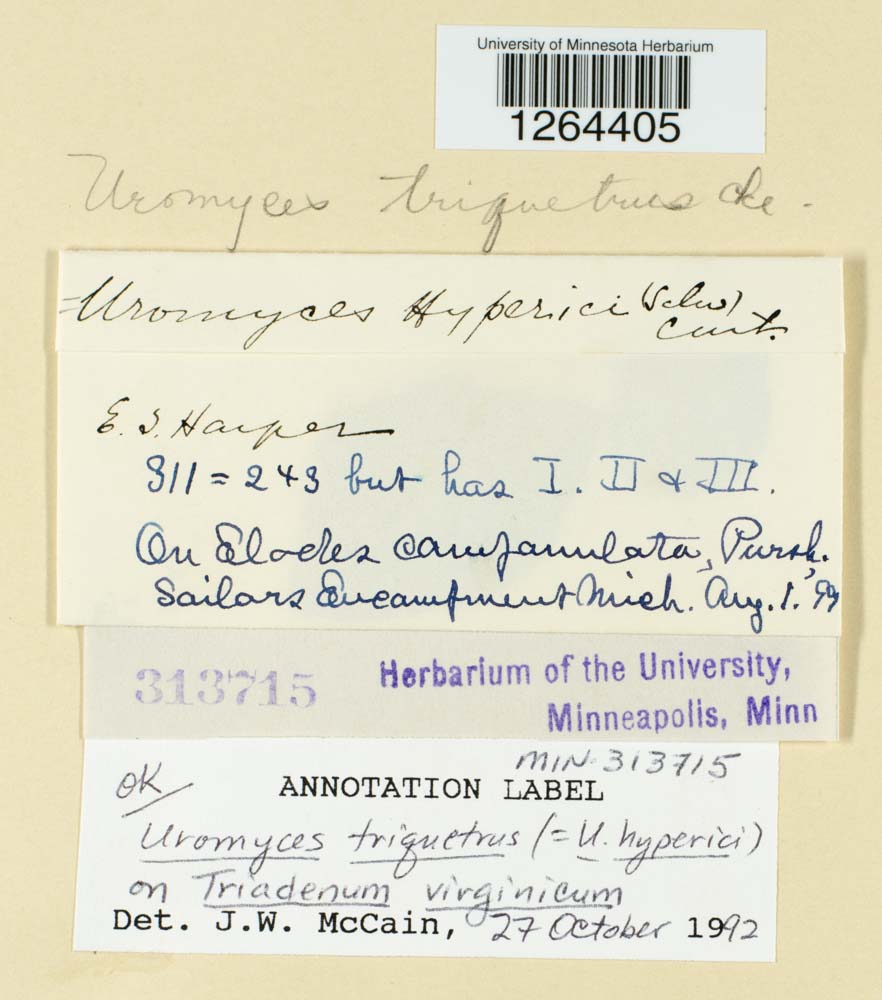 University of Minnesota Herbarium
1264405
Uromyces triquetrus Cke.
=Uromyces Hyperici (Schw)
Curt.
E. T. Harper
311 = 243 but has I. II & III.
On Elodes campanulata, Pursh.
Sailors Encampment Mich. Aug. 1. '99
313715
Herbarium of the University,
Minneapolis, Minn
MIN 313715
OK
ANNOTATION LABEL
Uromyces triquetrus (= U. hyperici)
on Triadenum virginicum
Det. J.W. McCain, 27 October 1992